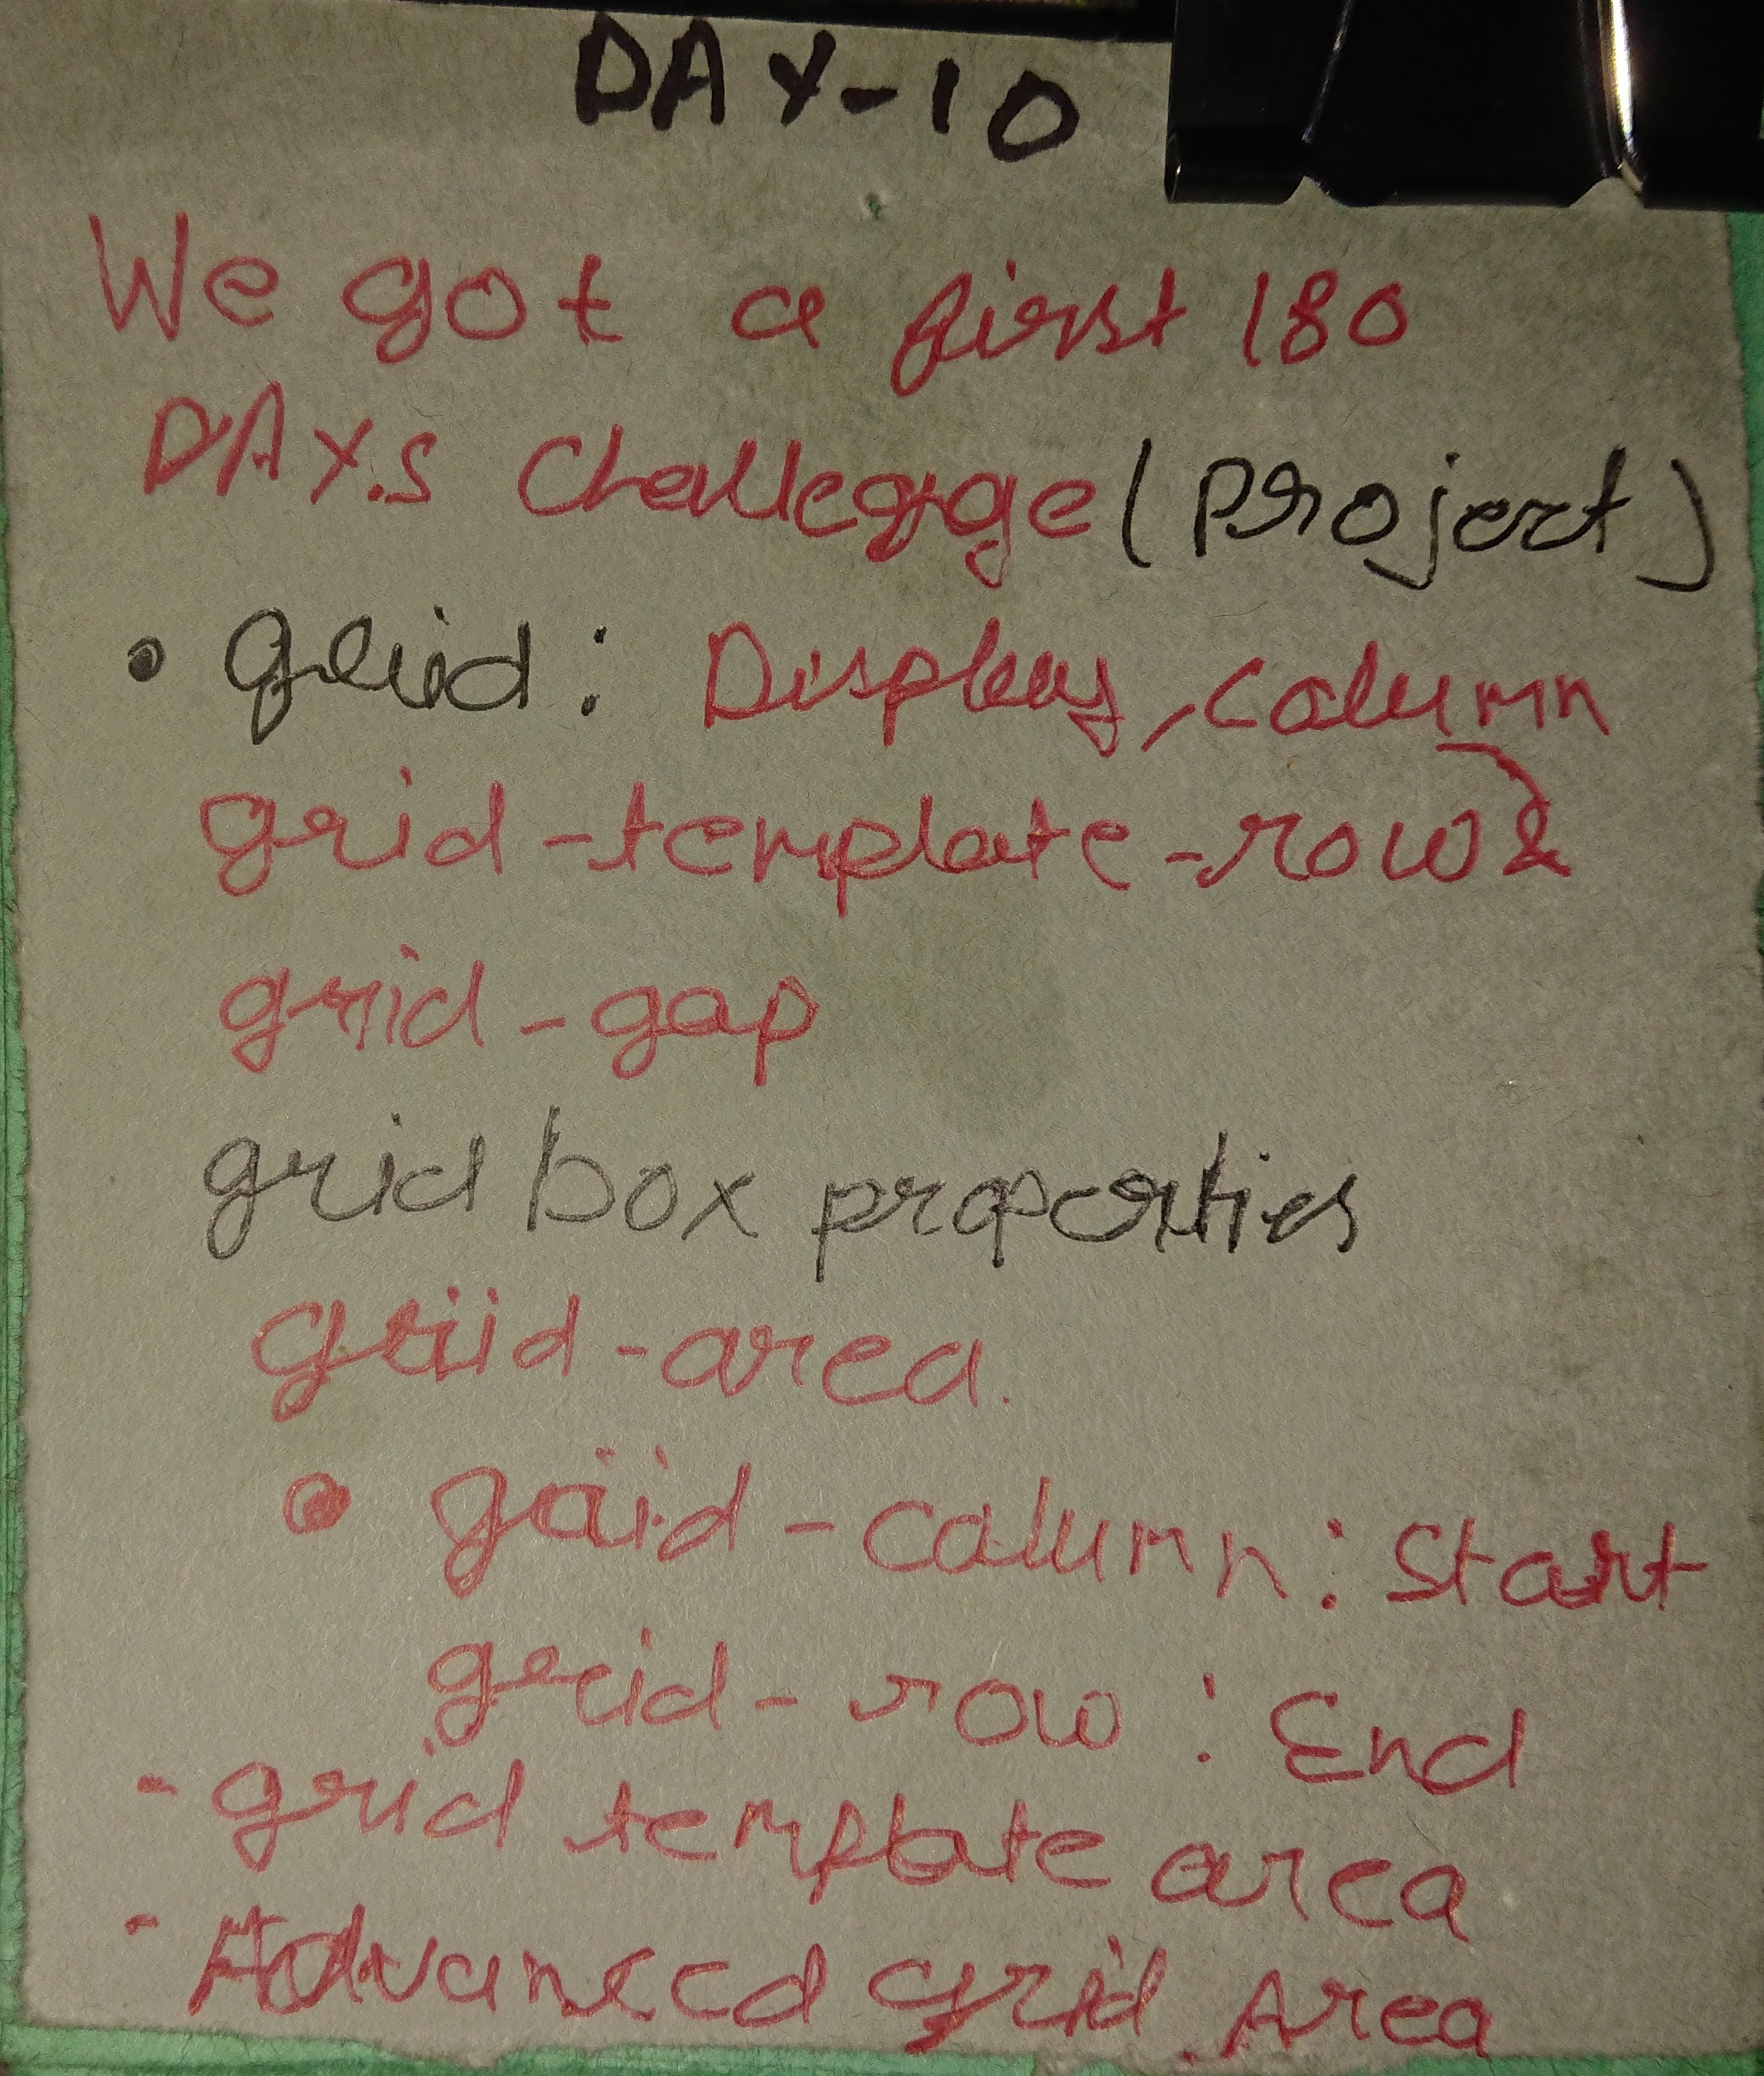 DAY-10
We got a first 180
DAY.S Challegge (Project)
• grid: Display, column
grid-template-row &
grid-gap
grid box properties
griid-area.
• griid-column: Start
grid-row: End
- grid template area
- Advanced grid Area